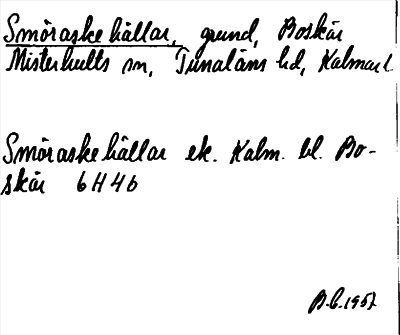 Smöraskehällar, grund, Boskär
Misterhults sn, Tunaläns hd, Kalmar l.
Smöraskehällar ek. Kalm. bl. Bo-
skär 6H4b
B.G.1957